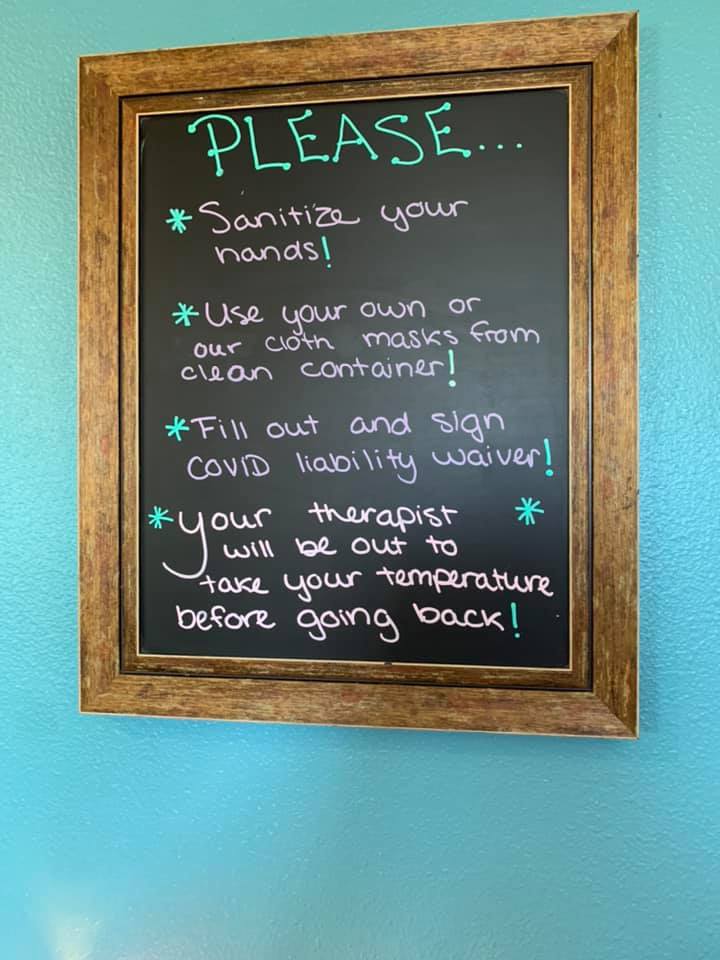 PLEASE...
* Sanitize your
hands!
* Use your own or
our cloth masks from
clean container!
* Fill out and sign
COVID liability waiver!
* Your therapist *
will be out to
take your temperature
before going back!